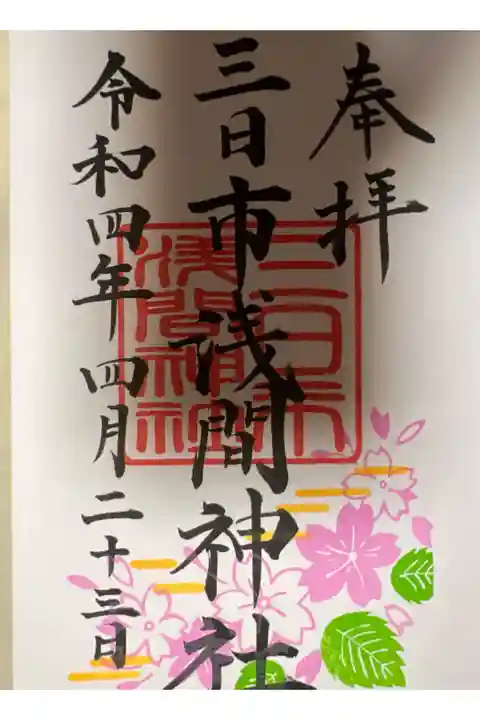 奉拝
三日市浅間神社
三日市
浅間神社
令和四年四月二十三日